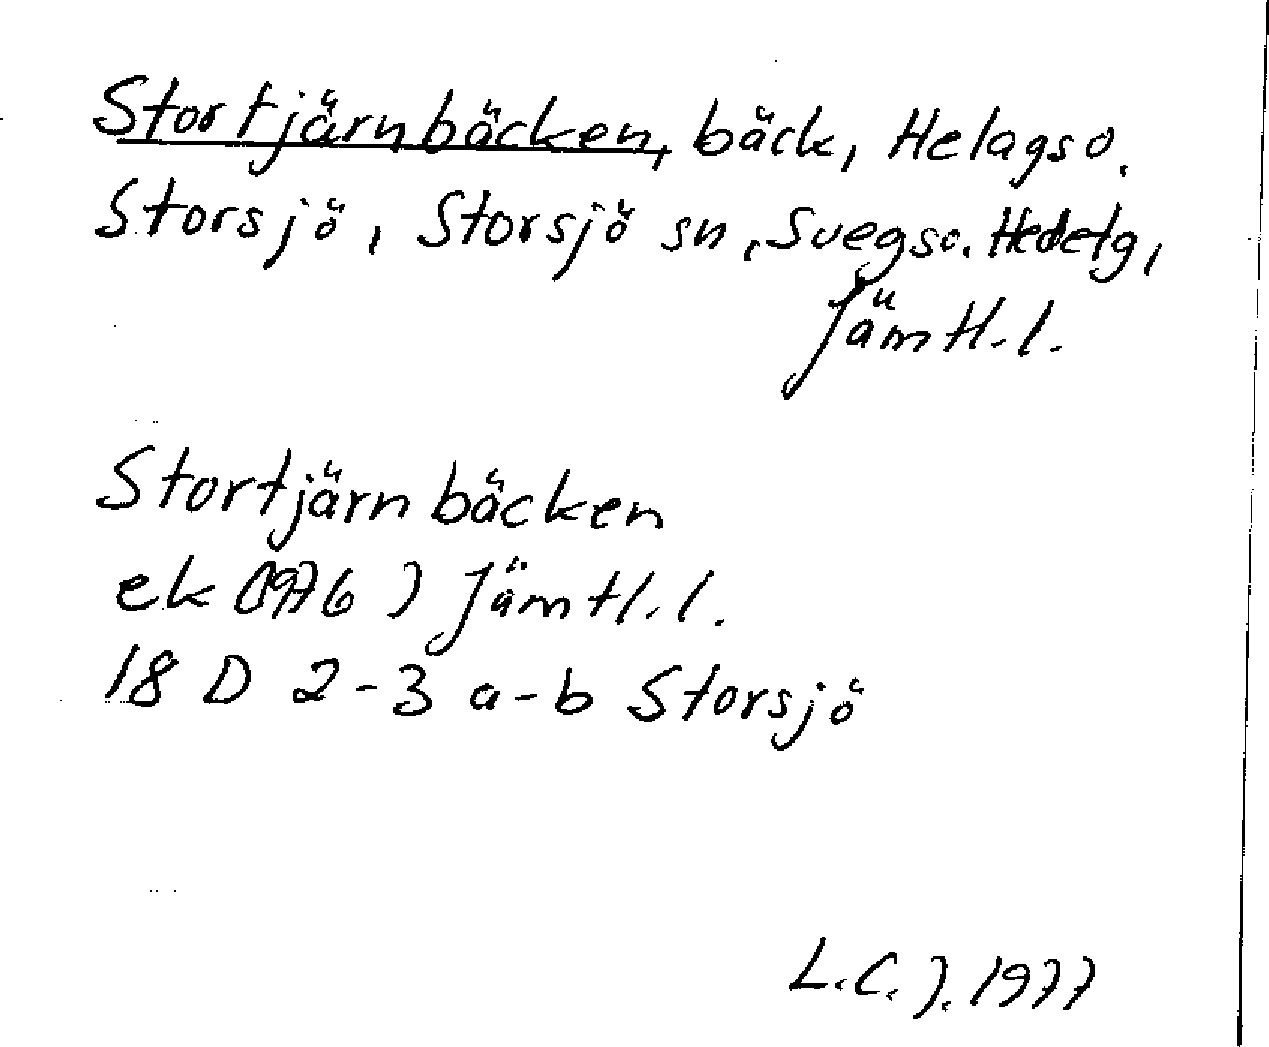 Stortjärnbäcken, bäck, Helagso.
Storsjö, Storsjö sn, Svegso. Hedelg,
Jämtl. l.
Stortjärnbäcken
ek (1976) Jämtl. l.
18 D 2-3 a-b Storsjö
L.C.J. 1977